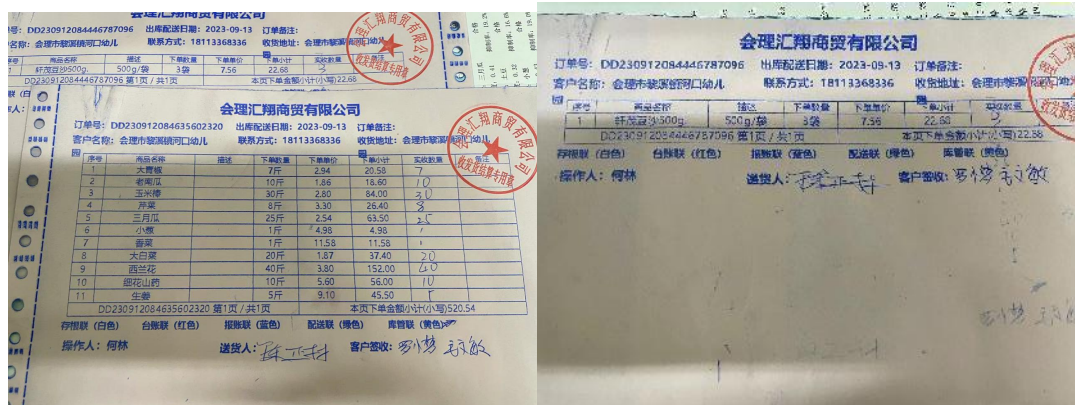 会理汇翔商贸有限公司
单号：DD230912084446787096 出库配送日期：2023-09-13 订单备注：
客户名称：会理市黎溪镇河口幼儿 联系方式：18113368336 收货地址：会理市黎溪镇河口幼儿园
商品名称 描述 下单数量 下单单价 下单小计 实收数量
1 轩茂豆沙500g 500g/袋 3袋 7.56 22.68 3
DD230912084446787096 第1页 / 共1页 本页下单金额小计(小写)22.68
会理汇翔商贸有限公司
订单号：DD230912084635602320 出库配送日期：2023-09-13 订单备注：
客户名称：会理市黎溪镇河口幼儿园 联系方式：18113368336 收货地址：会理市黎溪镇河口幼儿园
序号 商品名称 描述 下单数量 下单单价 下单小计 实收数量 备注
1 大青椒 7斤 2.94 20.58 7
2 老南瓜 10斤 1.86 18.60 10
3 玉米棒 30斤 2.80 84.00 30
4 芹菜 8斤 3.30 26.40 8
5 三月瓜 25斤 2.54 63.50 25
6 小葱 1斤 4.98 4.98 1
7 香菜 1斤 11.58 11.58 1
8 大白菜 20斤 1.87 37.40 20
9 西兰花 40斤 3.80 152.00 40
10 细花山药 10斤 5.60 56.00 10
11 生姜 5斤 9.10 45.50 5
DD230912084635602320 第1页 / 共1页 本页下单金额小计(小写)520.54
存根联（白色） 台账联（红色） 报账联（蓝色） 配送联（绿色） 库管联（黄色）
操作人：何林 送货人： 客户签收：
会理汇翔商贸有限公司
收发货结算专用章
会理汇翔商贸有限公司
订单号：DD230912084446787096 出库配送日期：2023-09-13 订单备注：
客户名称：会理市黎溪镇河口幼儿园 联系方式：18113368336 收货地址：会理市黎溪镇河口幼儿园
序号 商品名称 描述 下单数量 下单单价 下单小计 实收数量
1 轩茂豆沙500g 500g/袋 3袋 7.56 22.68 3
DD230912084446787096 第1页 / 共1页 本页下单金额小计(小写)22.68
存根联（白色） 台账联（红色） 报账联（蓝色） 配送联（绿色） 库管联（黄色）
操作人：何林 送货人： 客户签收：